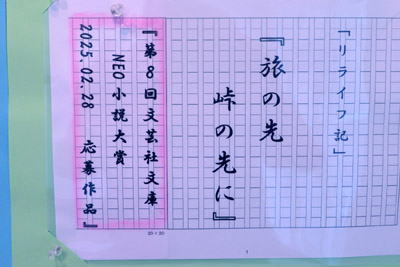 「リライフ記」
『旅の先
峠の先に』
『第8回文芸社文庫
NEO小説大賞
2025.02.28 応募作品』
20×20
1